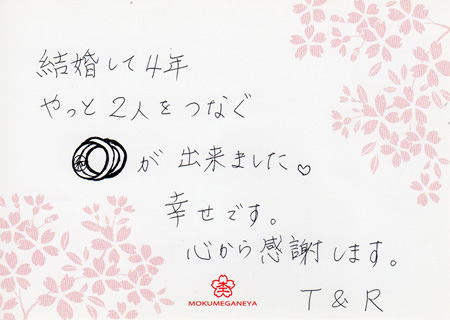 結婚して4年
やっと2人をつなぐ
が出来ました♡
幸せです。
心から感謝します。
T & R
MOKUMEGANEYA